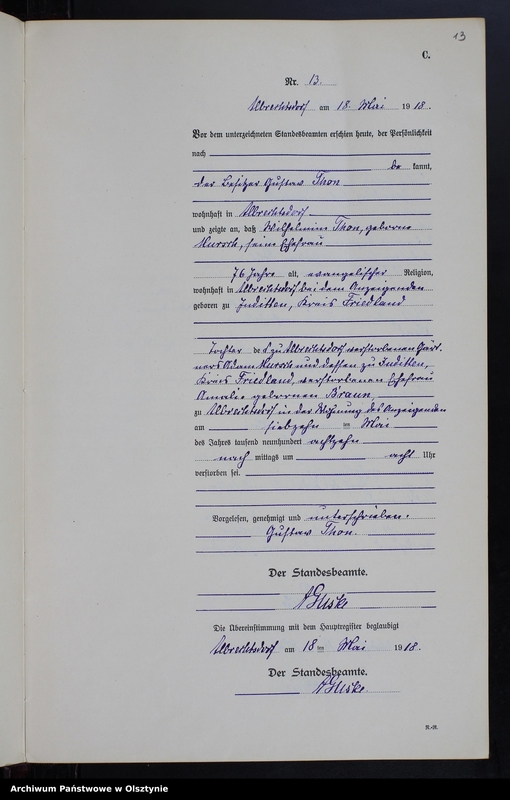 13
C.
Nr. 13.
Albrechtsdorf am 18. Mai 1918.
Vor dem unterzeichneten Standesbeamten erschien heute, der Persönlichkeit
nach
be kannt,
der Besitzer Gustav Thon
wohnhaft in Albrechtsdorf
und zeigte an, daß Wilhelmine Thon, geborne
seine Ehefrau
76 Jahre alt, evangelischer Religion,
wohnhaft in Albrechtsdorf bei dem Anzeigenden
geboren zu Juditten, Kreis Friedland
Tochter des zu Albrechtsdorf verstorbenen Gärt-
ners Adam und dessen zu Juditten,
Kreis Friedland, verstorbenen Ehefrau
Amalie gebornen Braun
zu Albrechtsdorf in der Wohnung des Anzeigenden
am siebzehn ten Mai
des Jahres tausend neunhundert achtzehn
nach mittags um acht Uhr
verstorben sei.
Vorgelesen, genehmigt und unterschrieben.
Gustav Thon.
Der Standesbeamte.
Die Übereinstimmung mit dem Hauptregister beglaubigt
Albrechtsdorf am 18 ten Mai 1918.
Der Standesbeamte.
Archiwum Państwowe w Olsztynie